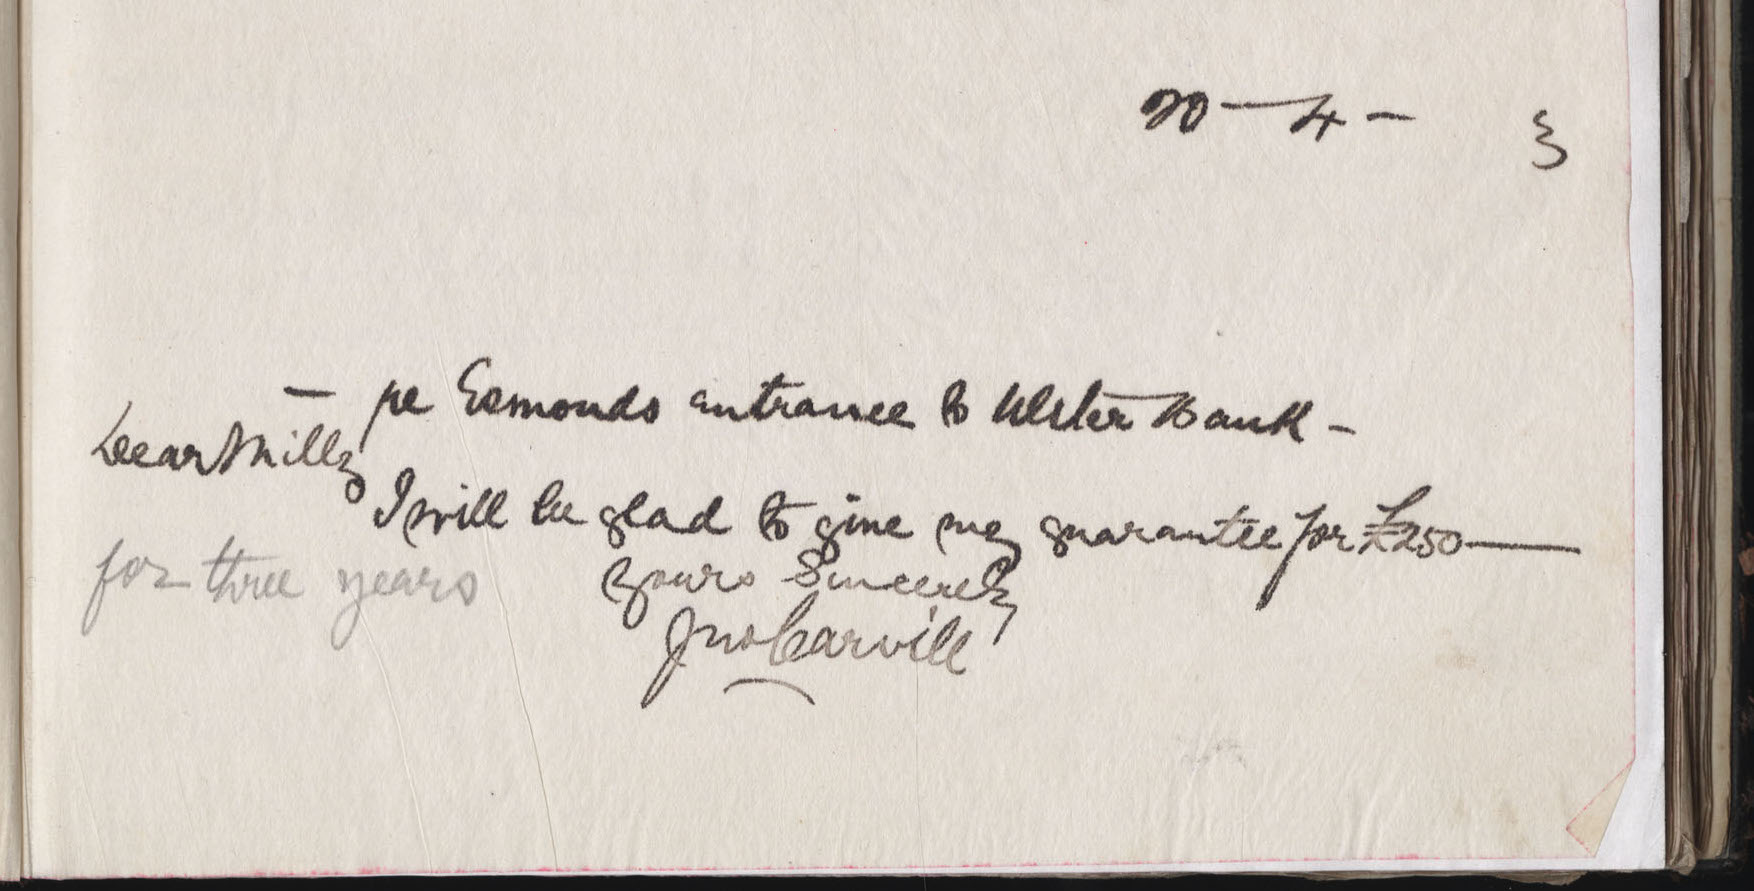 20 - 4 - 3
- re Esmonds entrance to Ulster Bank -
Dear Mills
I will be glad to give my guarantee for £250
for three years
Yours Sincerely
Jno Carvill